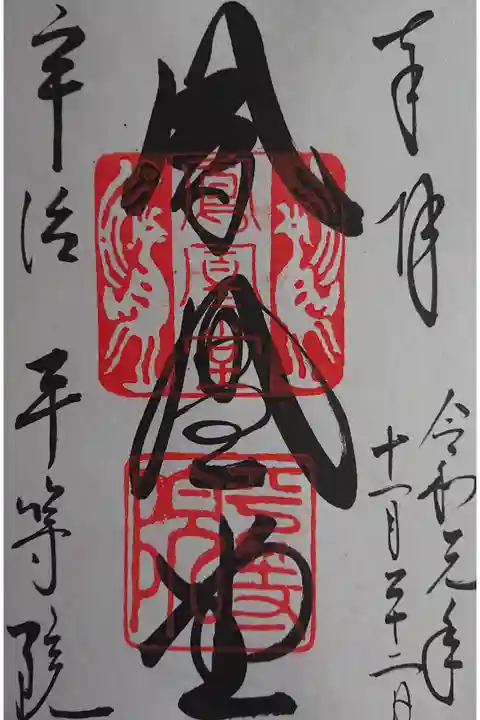 奉拝
令和元年
十一月二十二日
鳳凰堂
鳳凰堂
宇治 平等院